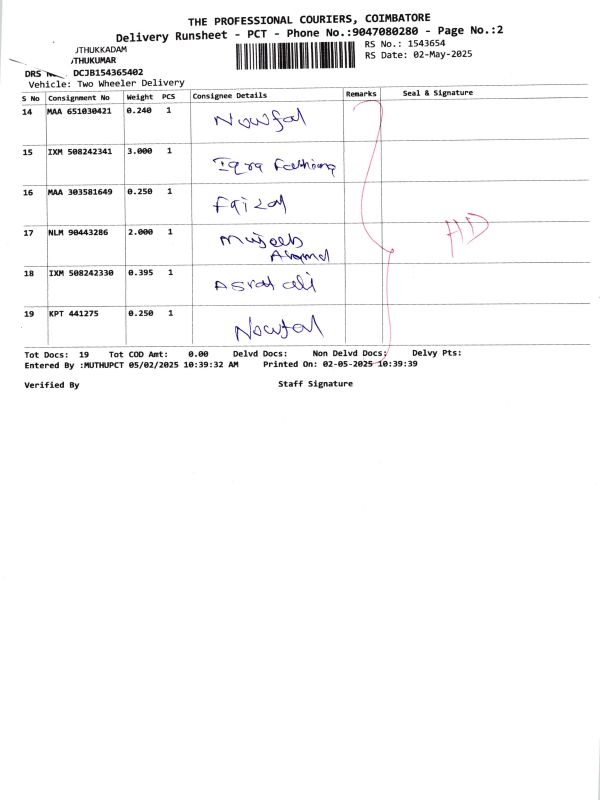 THE PROFESSIONAL COURIERS, COIMBATORE
Delivery Runsheet - PCT - Phone No.:9047080280 - Page No.:2
JTHUKKADAM
RS No.: 1543654
THUKUMAR
RS Date: 02-May-2025
DRS DCJB154365402
Vehicle: Two Wheeler Delivery
S No Consignment No Weight PCS Consignee Details Remarks Seal & Signature
14 MAA 651030421 0.240 1 Nowfal
15 IXM 508242341 3.000 1 Iqra Fathima
16 MAA 303581649 0.250 1 Faizal
17 NLM 90443286 2.000 1 Mujeeb
Ahamd
HD
18 IXM 508242330 0.395 1 Asrat ali
19 KPT 441275 0.250 1 Nowfal
Tot Docs: 19 Tot COD Amt: 0.00 Delvd Docs: Non Delvd Docs: Delvy Pts:
Entered By :MUTHUPCT 05/02/2025 10:39:32 AM Printed On: 02-05-2025 10:39:39
Verified By Staff Signature